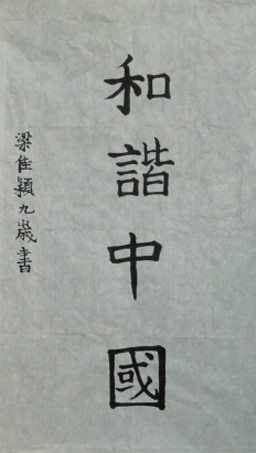 和諧中國
梁佳穎九歲書